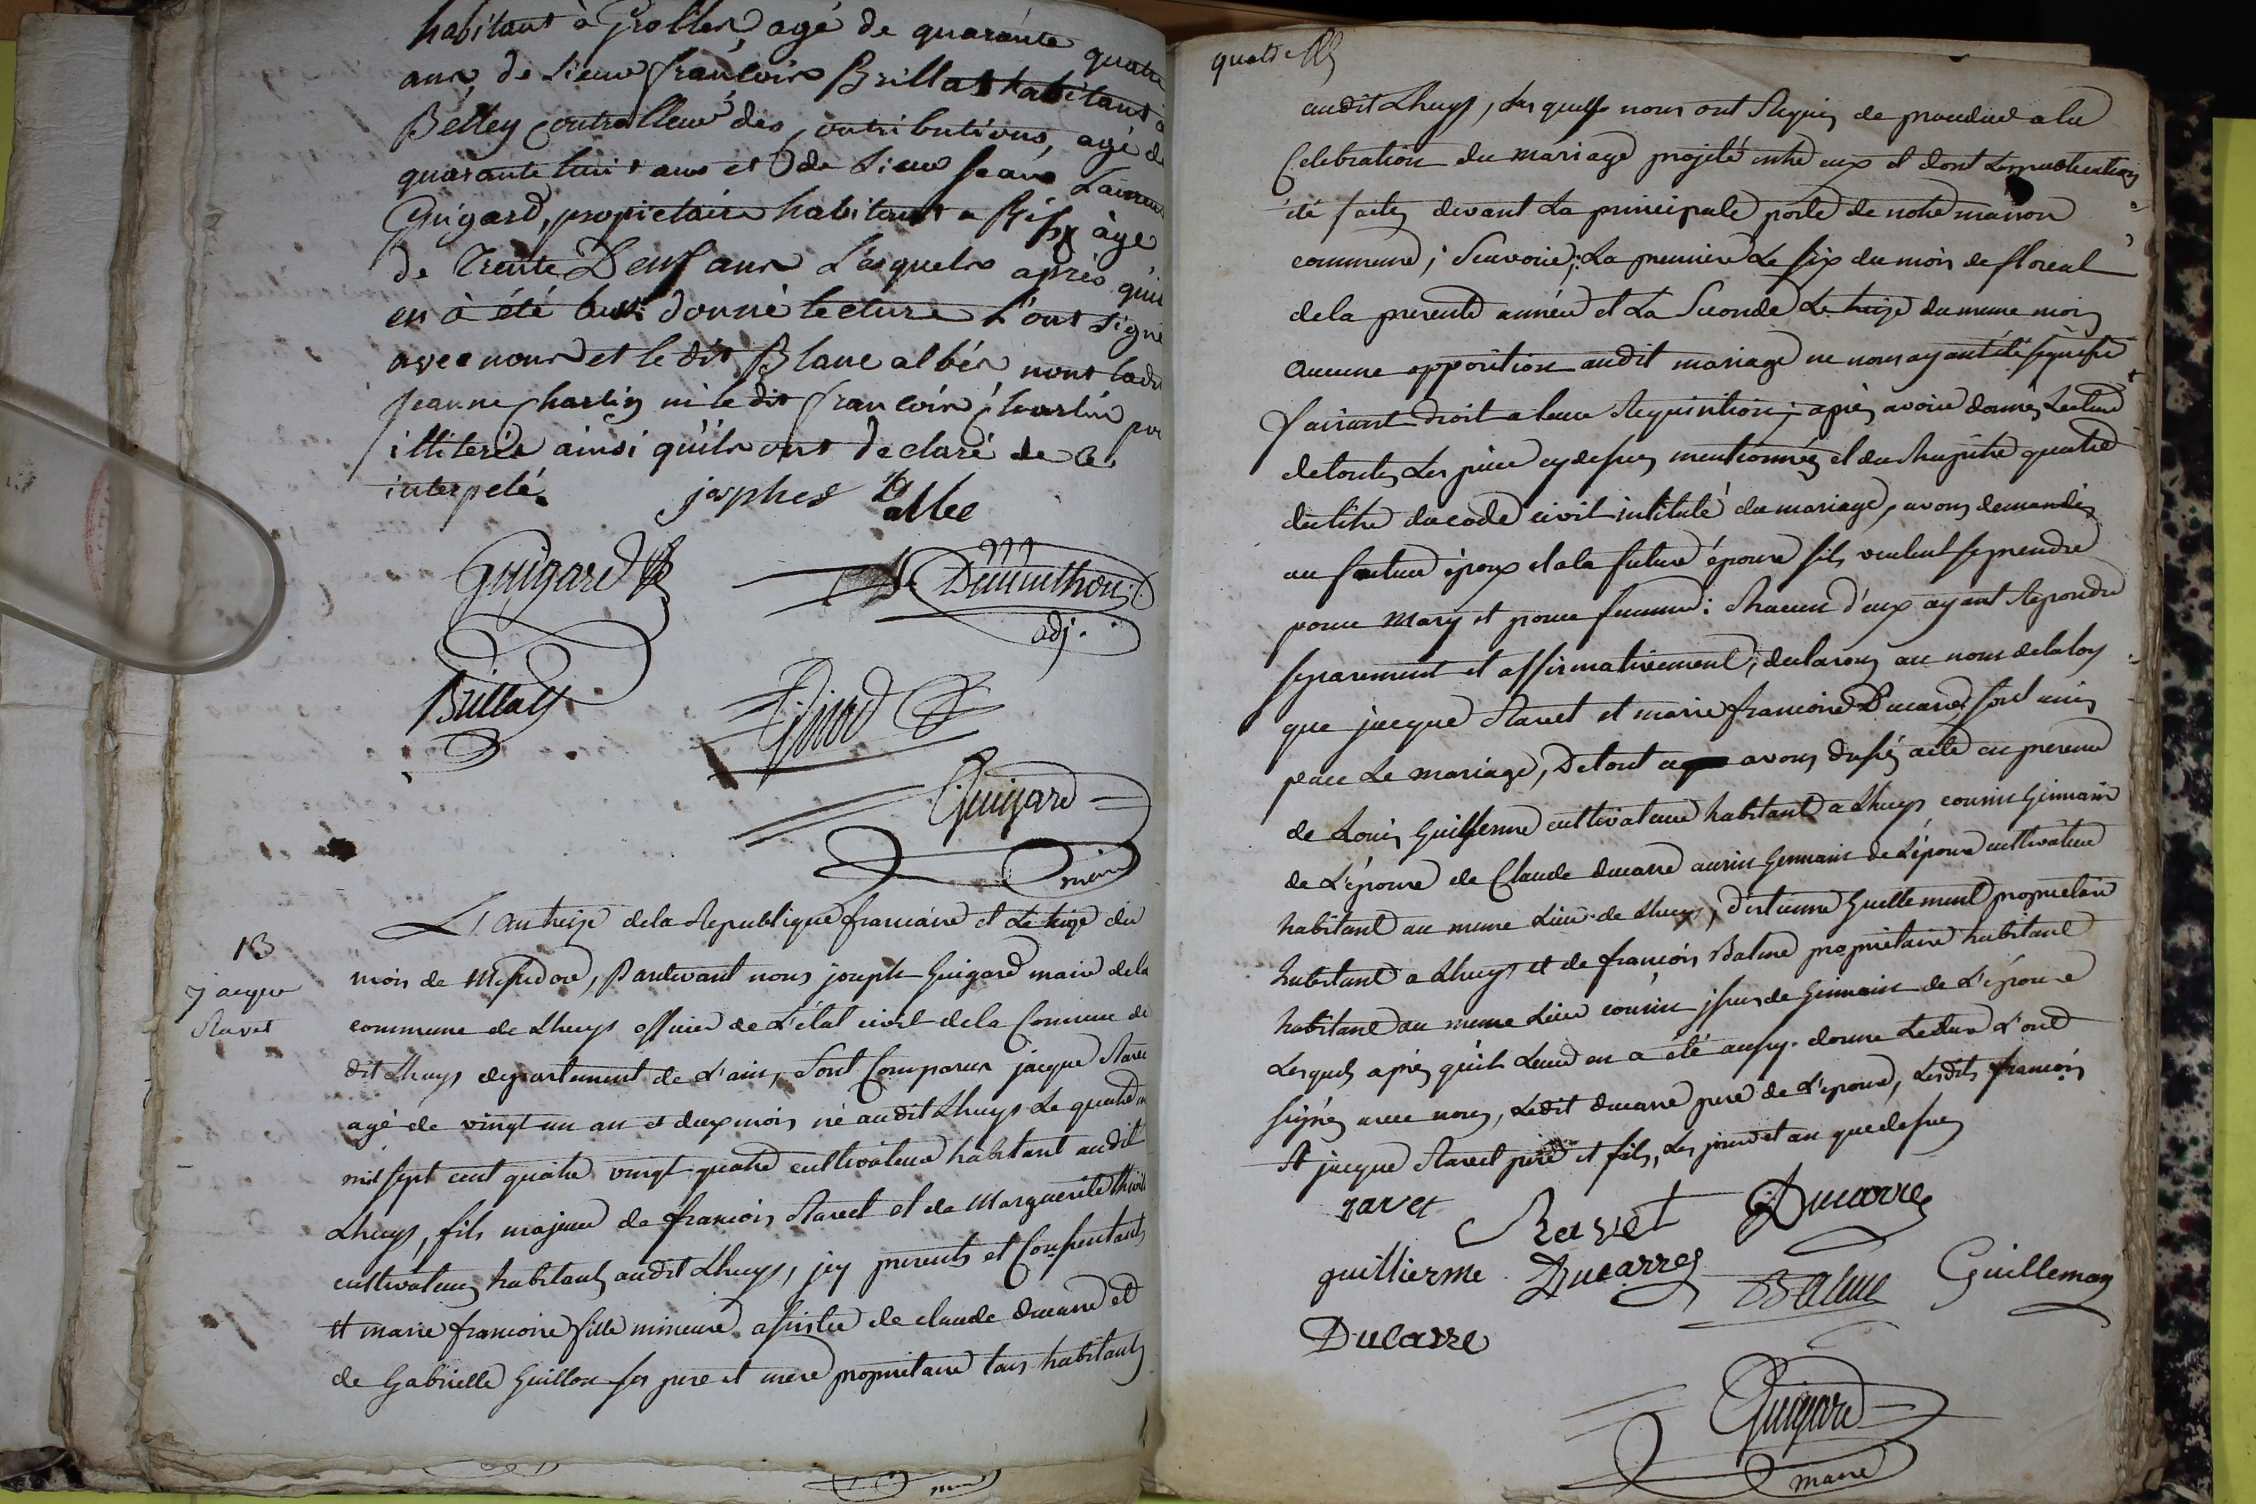 habitant à Grollier, agé de quarante quatre
ans, de Sieur françois Brillat habitant à
Belley Controlleur des Contributions, agé de
quarante huit ans et de Sieur Jean Laurent
Guigard, propietaire habitant a agé
de Trente Deux ans Lesquels après qu'il
en à été aussi donné lecture l'ont signé
avec nous et le dit Blanc albés non ladite
jeanne Charlin ni le dit françois Charlin pour
illiterés ainsi qu'ils ont declaré de ce
interpelé.
josphes B allbe
Guigard
Dimmthon
adj.
Brillat
Girod
Guigard
maire
13
jacque
Ravet
L'an treize dela Republique francaise et Le treize du
mois de Messidor, Pardevant nous joseph Guigard maire dela
commune de Lhuys officier de L'état civil dela Commune de
dit Lhuys departement de L'ain, Sont Comparus jacque Ravet
agé de vingt un an et deux mois né audit Lhuys Le quatre
mil sept cent quatre vingt quatre cultivateur habitant audit
Lhuys, fils majeur de francois Ravet et de Marguerite
cultivateurs habitants audit Lhuys, jcy presents et Consentants
Et marie francoise fille mineure assistée de claude ducarre et
de Gabrielle Guillon ses pere et mere propriétaire tous habitants
audit Lhuys, Les quels nous ont Requis de proceder a la
Celebration du mariage projeté entre eux et dont Les publications
été faites devant La principale porte de notre maison
commune ; Scavoir ; La premiere Le six du mois de floreal
dela presente année et La Seconde Le treize du meme mois
Aucune opposition audit mariage ne nous ayant été signifié
faisant droit a leur Requisition ; après avoir donné Lecture
de toutes Les piece cydessus mentionnées et du Chapitre quatre
du titre du code civil intitulé du mariage, avons demandés
au futur époux et a la future épouse s'ils veulent se prendre
pour Mary et pour femme ; Chacun d'eux ayant Repondu
separement et affirmativement ; declarons au nom de la loy
que jacque Ravet et marie francoise Ducarre sont unis
par Le mariage, De tout ce avons dressés acte en presence
de Louis Guillerme cultivateur habitant a Lhuys cousin Germain
de L'épouse de Claude ducarre cousin Germain de L'épouse cultivateur
habitant au meme Lieu de Lhuys, d'estienne Guillemend proprietaire
habitant a Lhuys et de francois Balme propriétaire habitant
habitant au meme Lieu cousin jssus de Germain de L'épouse
Lesquels après qu'il Leur en a été aussy donné Lecture L'ont
signés avec nous, Ledit ducarre pere de L'epouse, Lesdits francois
Et jacque Ravet pere et fils, Les jour et an que dessus
ravet
Ravet
Ducarre
guillierme
Ducarre
Balme
Guilleman
Ducarre
Guigard
maire